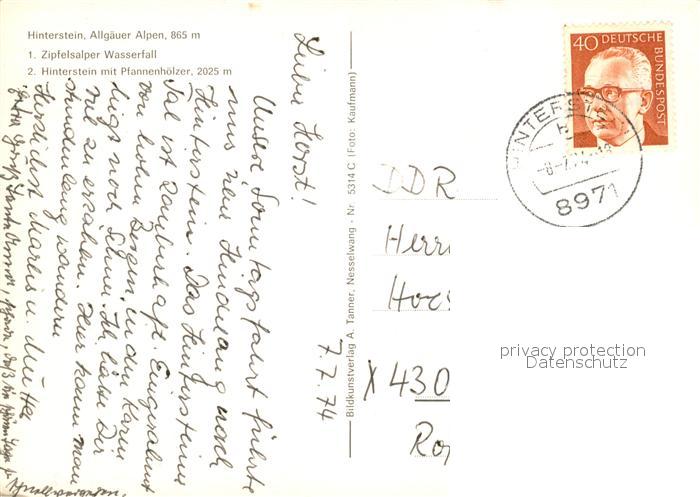 Hinterstein, Allgäuer Alpen, 865 m
1. Zipfelsalper Wasserfall
2. Hinterstein mit Pfannenhölzer, 2025 m
Lieber Horst!
Unsere Sonntagsfahrt führte
uns von Hindelang nach
Hinterstein. Das Hintersteiner
Tal ist zauberhaft. Eingerahmt
von hohen Bergen, in den Karen
liegt noch Schnee. Ich habe Dir
viel zu erzählen. Hier kann man
stundenlang wandern
Herzlichst Marlis u. Mutter
7.7.74
Bildkunstverlag A. Tanner, Nesselwang - Nr. 5314 C (Foto: Kaufmann)
40 DEUTSCHE BUNDESPOST
HINTERSTEIN
b
-8-7.74-18
8971
DDR
Herr
Hor
X 430
Ro
privacy protection
Datenschutz